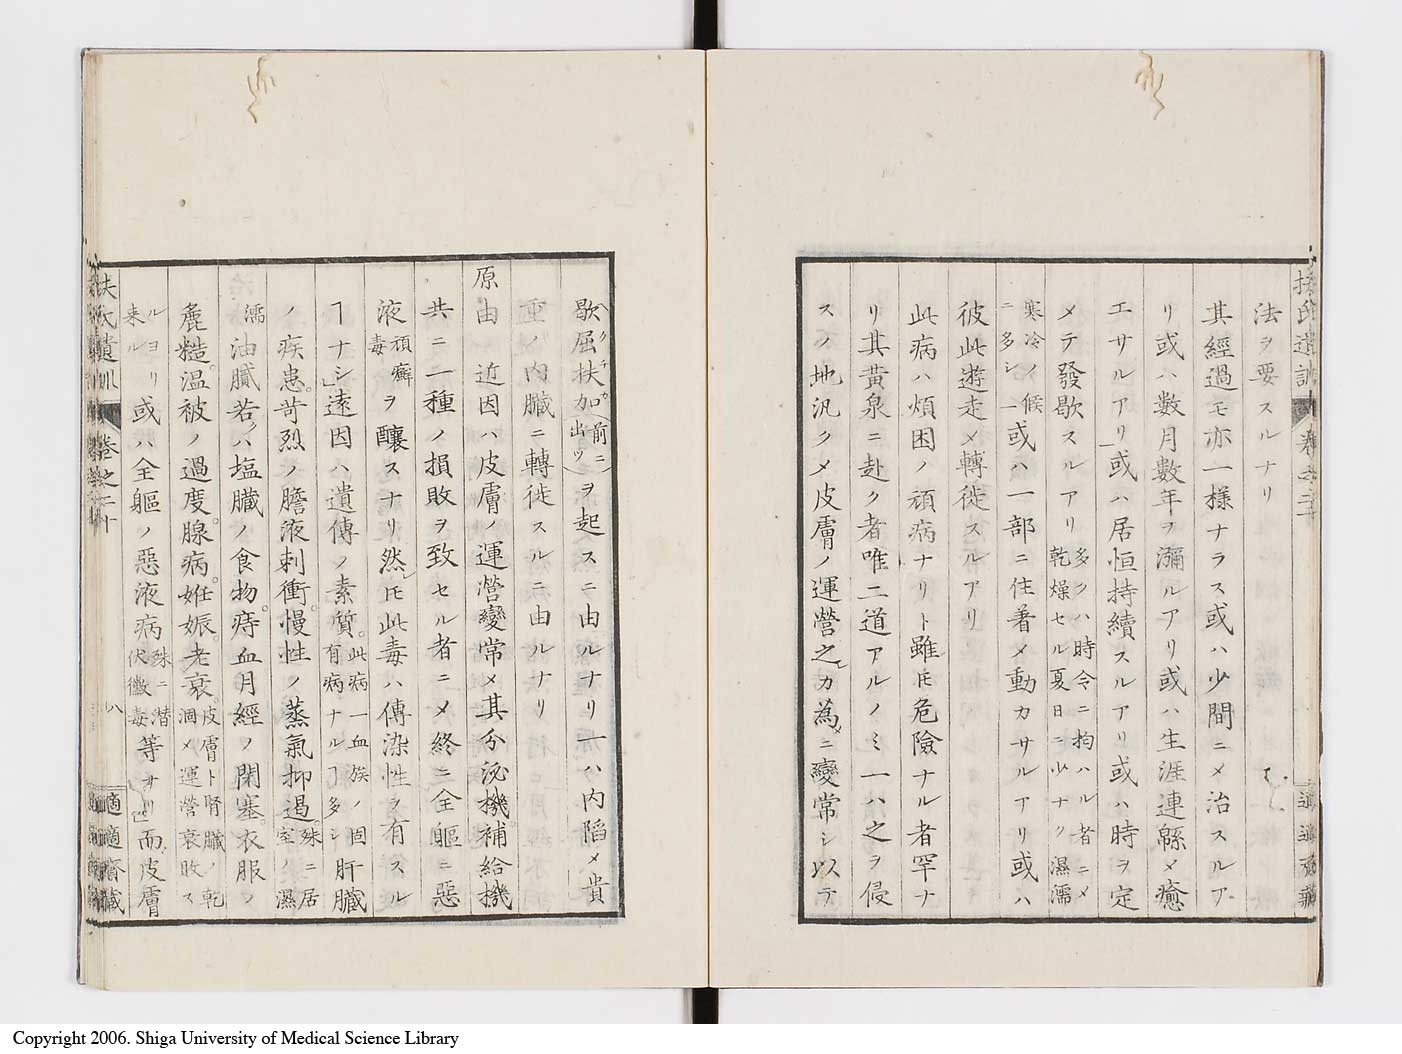 扶氏遺訓 卷之二十
適適齋藏
法ヲ要スルナリ
其經過モ亦一様ナラス或ハ少間ニメ治スルア
リ或ハ數月數年ヲ瀰ルアリ或ハ生涯連緜メ癒
エサルアリ或ハ居恒持續スルアリ或ハ時ヲ定
メテ發歇スルアリ多クハ時令ニ拘ハル者ニメ乾燥セル夏日ニ少ナク濕濡
寒冷ノ候ニ多シ或ハ一部ニ住着メ動カサルアリ或ハ
彼此遊走メ轉徙スルアリ
此病ハ煩困ノ頑病ナリト雖𪜈危險ナル者罕ナ
リ其黄泉ニ赴ク者唯二道アルノミ一ハ之ヲ侵
スノ地汎クメ皮膚ノ運營之カ為ニ變常シ以テ
歇屈扶加(前ニ出ツ)ヲ起スニ由ルナリ一ハ内陷メ貴
ヘクチカ
重ノ内臟ニ轉徙スルニ由ルナリ
原由 近因ハ皮膚ノ運營變常メ其分泌機補給機
共ニ一種ノ損敗ヲ致セル者ニメ終ニ全軀ニ惡
液頑癬毒ヲ釀スナリ然𪜈此毒ハ傳染性ヲ有スル
ヿナシ遠因ハ遺傳ノ素質此病一血族ノ固有病ナルヿ多シ肝臟
ノ疾患苛烈ノ膽液刺衝慢性ノ蒸氣抑遏殊ニ居室ノ濕
濡油膩若クハ塩臓ノ食物痔血月經ノ閉塞衣服ノ
麁糙温被ノ過度腺病姙娠老衰皮膚ト腎臟ノ乾涸メ運營衰敗ス
ルヨリ来ル或ハ全軀ノ惡液病殊ニ潜伏黴毒等ナリ而皮膚
扶氏遺訓 卷之二十
八
適適齋藏